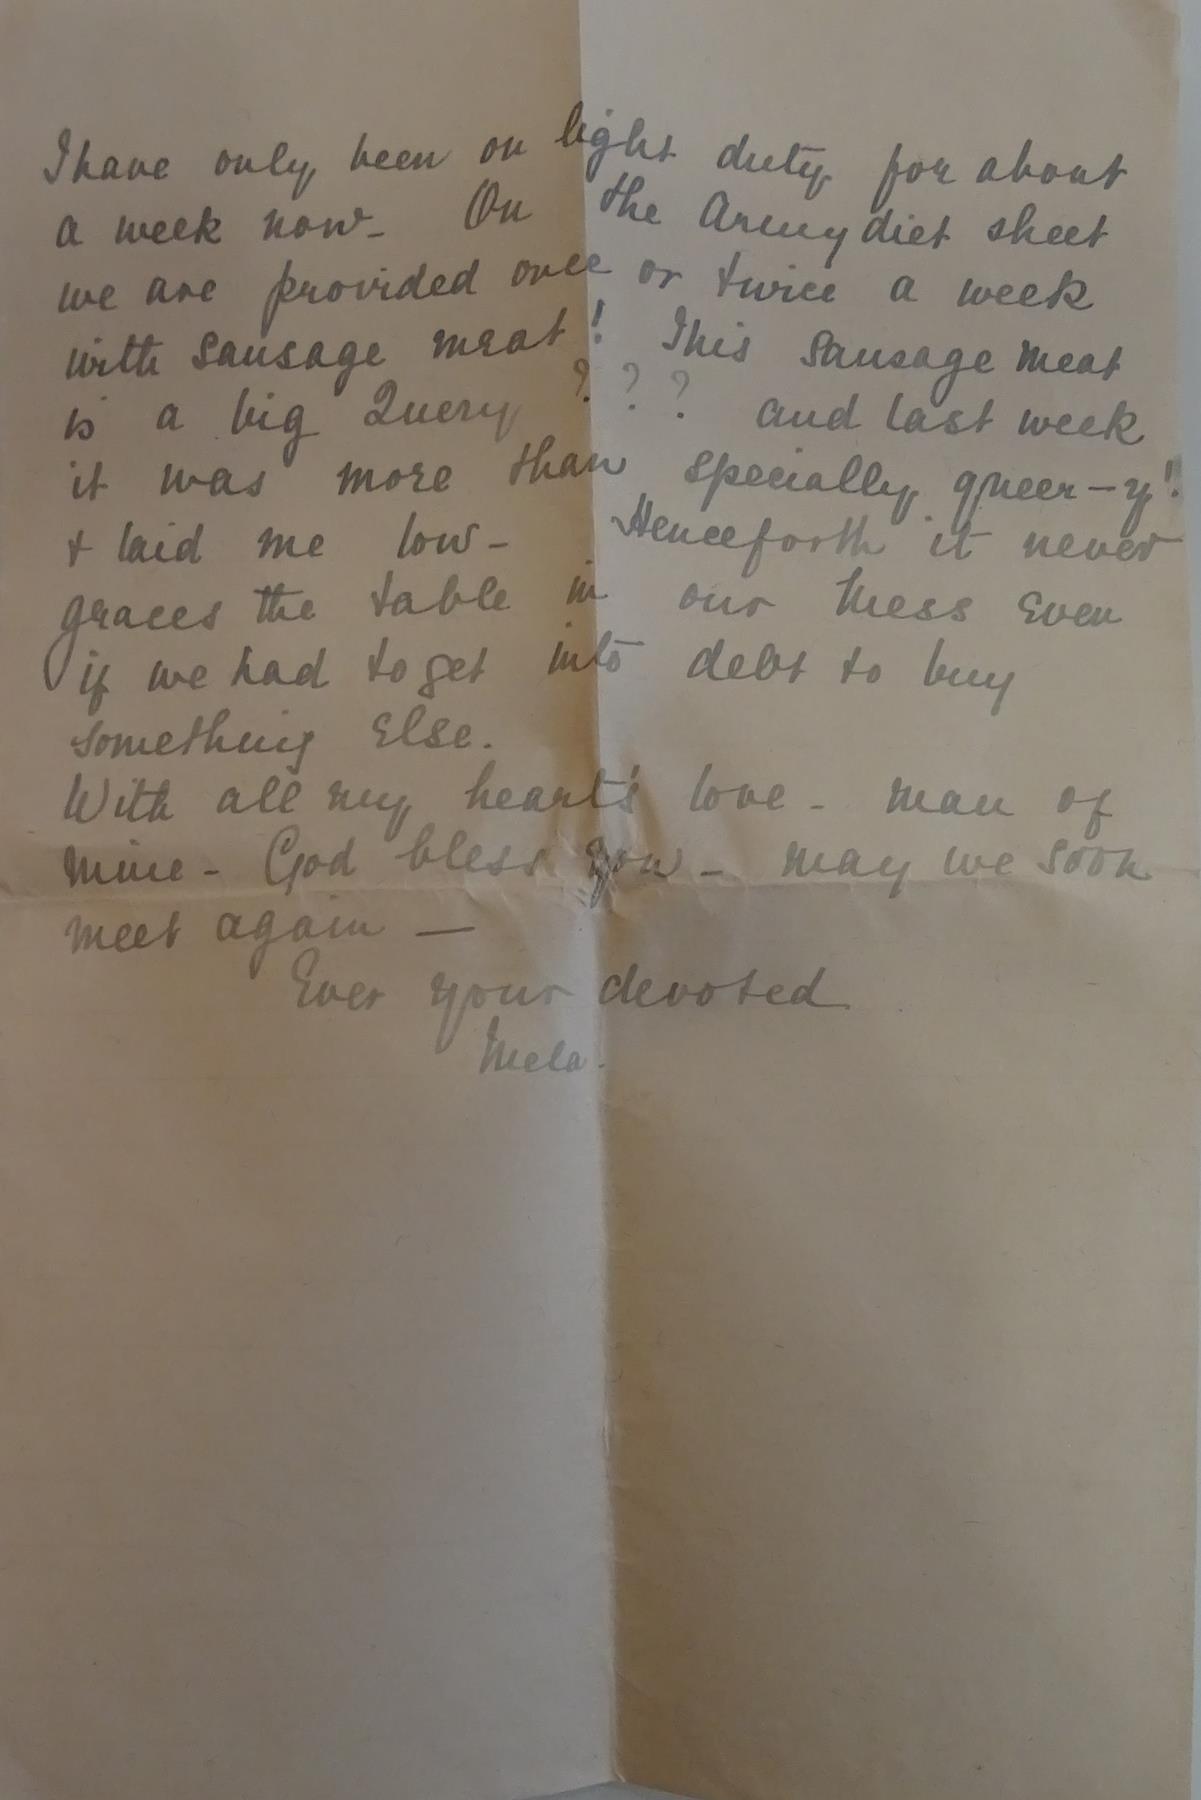 I have only been on light duty for about
a week now - On the Army diet sheet
we are provided once or twice a week
with sausage meat! This sausage meat
is a big Query ? ? ? and last week
it was more than specially queer-y!
+ laid me low - Henceforth it never
graces the table in our mess even
if we had to get into debt to buy
something else.
With all my heart's love - man of
mine - God bless you - may we soon
meet again —
Ever your devoted
Mela.